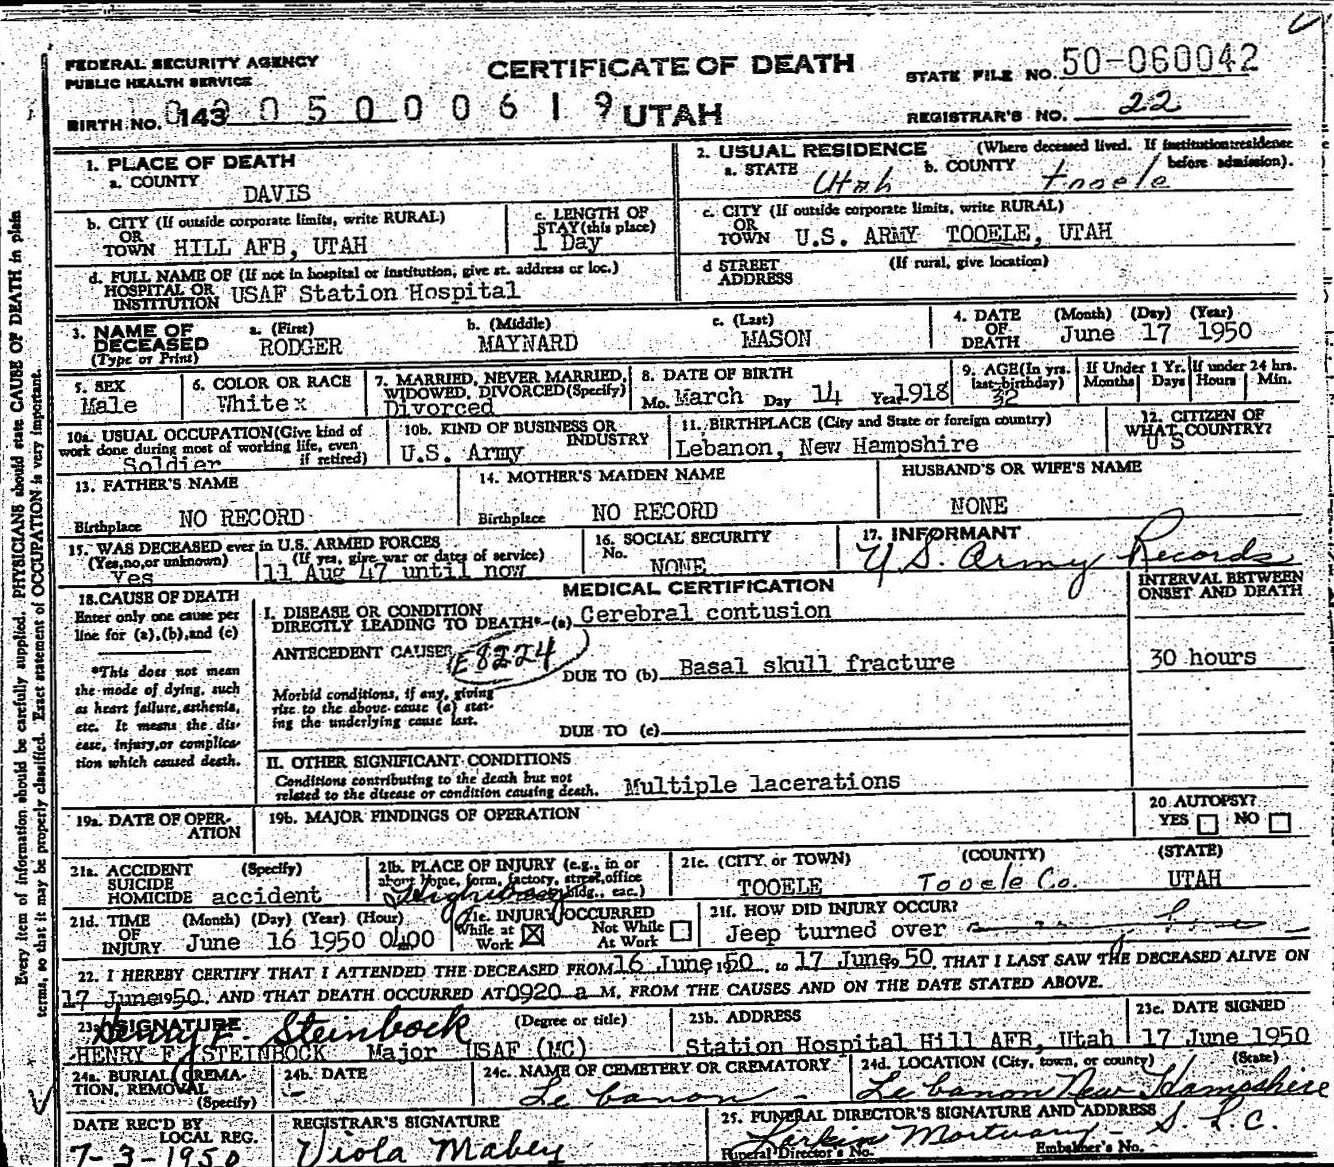 FEDERAL SECURITY AGENCY
PUBLIC HEALTH SERVICE
CERTIFICATE OF DEATH
STATE FILE NO. 50-060042
BIRTH NO. 143 0 5 0 0 0 6 1 9
UTAH
REGISTRAR'S NO. 22
1. PLACE OF DEATH
a. COUNTY
DAVIS
2. USUAL RESIDENCE (Where deceased lived. If institution: residence before admission).
a. STATE Utah b. COUNTY Tooele
b. CITY (If outside corporate limits, write RURAL)
OR
TOWN HILL AFB, UTAH
c. LENGTH OF
STAY (this place)
1 Day
c. CITY (If outside corporate limits, write RURAL)
OR
TOWN U.S. ARMY TOOELE, UTAH
d. FULL NAME OF (If not in hospital or institution, give st. address or loc.)
HOSPITAL OR
INSTITUTION USAF Station Hospital
d STREET (If rural, give location)
ADDRESS
3. NAME OF
DECEASED
(Type or Print)
a. (First)
RODGER
b. (Middle)
MAYNARD
c. (Last)
MASON
4. DATE (Month) (Day) (Year)
OF
DEATH June 17 1950
5. SEX
Male
6. COLOR OR RACE
White x
7. MARRIED, NEVER MARRIED,
WIDOWED, DIVORCED (Specify)
Divorced
8. DATE OF BIRTH
Mo. March Day 14 Year 1918
9. AGE (In yrs.
last birthday)
32
If Under 1 Yr.
Months Days
If under 24 hrs.
Hours Min.
10a. USUAL OCCUPATION (Give kind of
work done during most of working life, even
if retired)
Soldier
10b. KIND OF BUSINESS OR
INDUSTRY
U.S. Army
11. BIRTHPLACE (City and State or foreign country)
Lebanon, New Hampshire
12. CITIZEN OF
WHAT COUNTRY?
U S
13. FATHER'S NAME
Birthplace NO RECORD
14. MOTHER'S MAIDEN NAME
Birthplace NO RECORD
HUSBAND'S OR WIFE'S NAME
NONE
15. WAS DECEASED ever in U.S. ARMED FORCES
(Yes, no, or unknown) (If yes, give war or dates of service)
Yes 11 Aug 47 until now
16. SOCIAL SECURITY
No. NONE
17. INFORMANT
U.S. Army Records
18. CAUSE OF DEATH
Enter only one cause per
line for (a), (b), and (c)
*This does not mean
the mode of dying, such
as heart failure, asthenia,
etc. It means the dis-
ease, injury, or complica-
tion which caused death.
MEDICAL CERTIFICATION
INTERVAL BETWEEN
ONSET AND DEATH
I. DISEASE OR CONDITION
DIRECTLY LEADING TO DEATH*-(a) Cerebral contusion
ANTECEDENT CAUSES
E8224
DUE TO (b) Basal skull fracture
30 hours
Morbid conditions, if any, giving
rise to the above cause (a) stat-
ing the underlying cause last.
DUE TO (c)
II. OTHER SIGNIFICANT CONDITIONS
Conditions contributing to the death but not
related to the disease or condition causing death.
Multiple lacerations
19a. DATE OF OPER-
ATION
19b. MAJOR FINDINGS OF OPERATION
20 AUTOPSY?
YES NO
21a. ACCIDENT (Specify)
SUICIDE
HOMICIDE accident
21b. PLACE OF INJURY (e.g., in or
about home, farm, factory, street, office
bldg., etc.)
Highway
21c. (CITY or TOWN) (COUNTY) (STATE)
TOOELE Tooele Co. UTAH
21d. TIME (Month) (Day) (Year) (Hour)
OF
INJURY June 16 1950 0400
21e. INJURY OCCURRED
While at
Work
Not While
At Work
21f. HOW DID INJURY OCCUR?
Jeep turned over
22. I HEREBY CERTIFY THAT I ATTENDED THE DECEASED FROM 16 June 1950, to 17 June 1950, THAT I LAST SAW THE DECEASED ALIVE ON
17 June 1950, AND THAT DEATH OCCURRED AT 0920 a M, FROM THE CAUSES AND ON THE DATE STATED ABOVE.
23a. SIGNATURE (Degree or title)
Henry F. Steinbock
HENRY F. STEINBOCK Major USAF (MC)
23b. ADDRESS
Station Hospital Hill AFB, Utah
23c. DATE SIGNED
17 June 1950
24a. BURIAL, CREMA-
TION, REMOVAL
(Specify)
24b. DATE
24c. NAME OF CEMETERY OR CREMATORY
Lebanon
24d. LOCATION (City, town, or county) (State)
Lebanon New Hampshire
DATE REC'D BY
LOCAL REG.
7-3-1950
REGISTRAR'S SIGNATURE
Viola Mabey
25. FUNERAL DIRECTOR'S SIGNATURE AND ADDRESS
Larkin Mortuary - S. L. C.
Funeral Director's No. Embalmer's No.
Every item of information should be carefully supplied. PHYSICIANS should state CAUSE OF DEATH in plain
terms, so that it may be properly classified. Exact statement of OCCUPATION is very important.